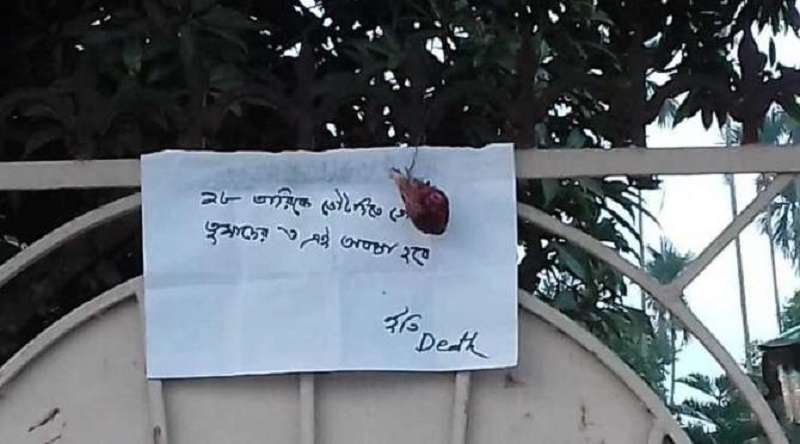 ২৮ তারিকে
তুমাদের ও এই অবস্থা হবে
ইতি
Death